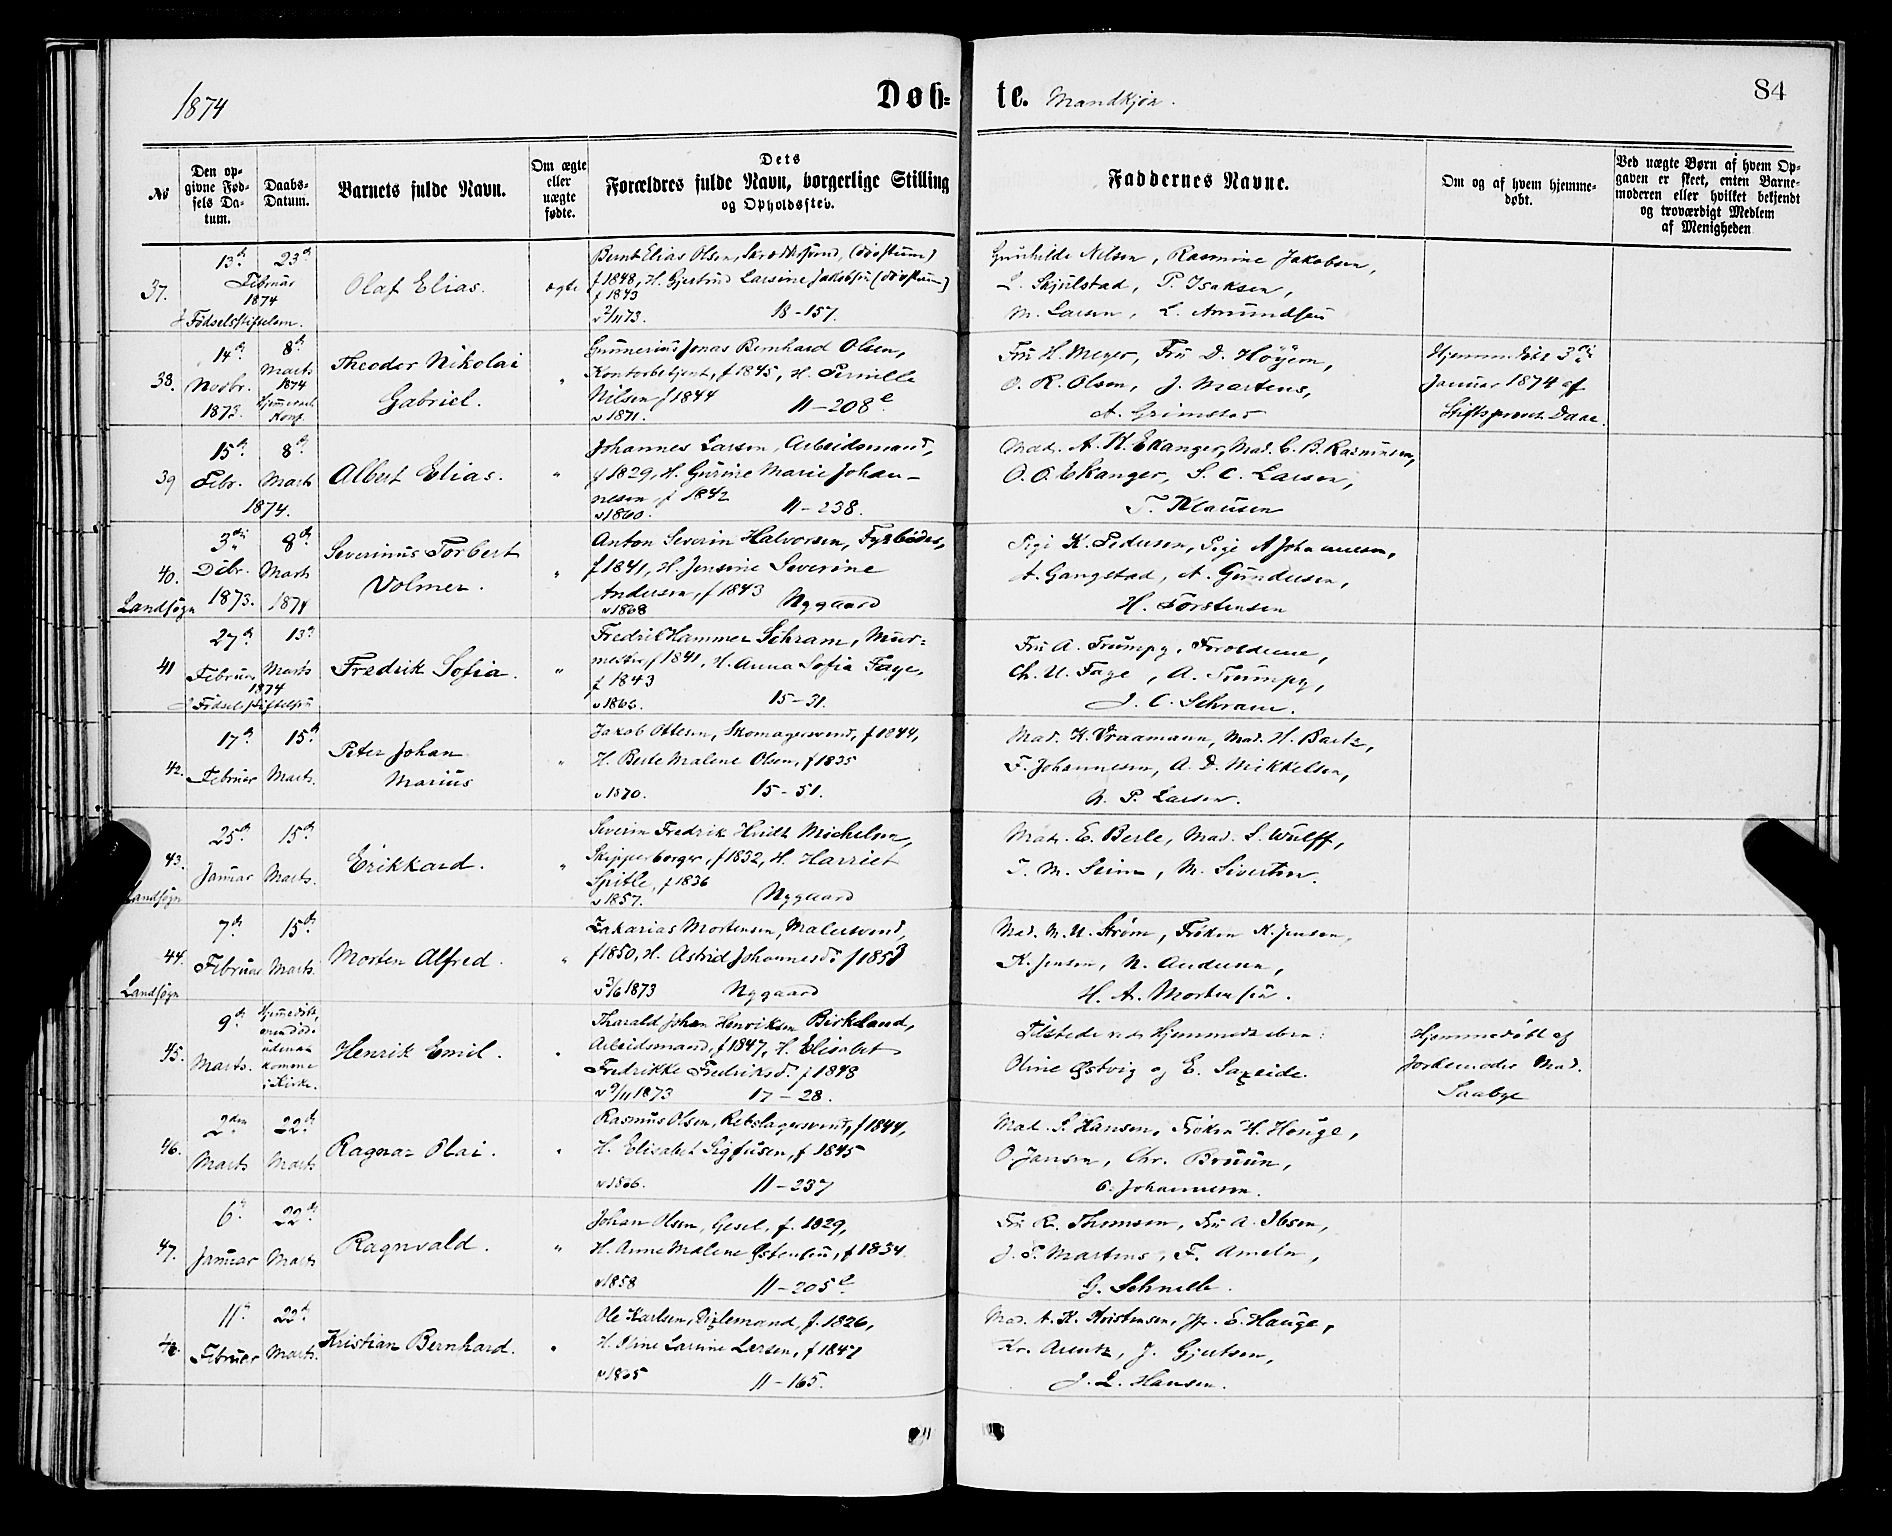 1874
Døb=
te. Mandkjøn.
84
No
Den op-
givne Fød-
sels Da-
tum.
Daabs-
Datum.
Barnets fulde Navn.
Om ægte
eller
uægte
fødte.
Dets
Forældres fulde Navn, borgerlige Stilling
og Opholdssted.
Faddernes Navne.
Om og af hvem hjemme-
døbt.
Ved uægte Børn af hvem Op-
gaven er skeet, enten Barne-
moderen eller hvilket bekjendt
og troværdigt Medlem
af Menigheden
37.
13de 23de
Februar
1874
Fødselsstiftelsen.
Olaf Elias.
ægte
Bernt Elias Olsen,
f 1848, H. Gjertrud Larsine Jakobsen
f 1843
v 2/11 73. 18-157.
Gunhilde Nilsen, Rasmine Jakobsen,
L. Skjulstad, P. Isaksen,
M. Larsen, L. Amundsen
38.
14de
Novbr.
1873.
8de
Marts
1874
Theodor Nikolai
Gabriel.
"
Gunnerius Jonas Bernhard Olsen,
Kontorbetjent, f 1845, H. Pernille
Nilsen f 1844
v 1871. 11-208e
Fru H. Meyer, Fru D. Höyem,
O. R. Olsen, J. Martens,
A. Grimstad
Hjemmedøbt 3die
Januar 1874 af
Stiftsprovst Daae.
39
15de
Febr.
8de
Marts
1874.
Albert Elias.
"
Johannes Larsen, Arbeidsmand,
f 1829, H. Gurine Marie Johan-
nesen, f 1842
v 1860. 11-238.
Mad. A. K. Ekanger, Mad. C. B. Rasmussen,
O. O. Ekanger, S. C. Larsen,
T. Klausen
40.
Landsogn
3die
Debr.
1873.
8de
Marts
1874
Severinus Torbert
Volmer.
"
Anton Severin Halvorsen, Fyrbøder,
f 1841, H. Jensine Severine
Andersen, f 1843
v 1868 Nygaard
Pige K. Pedersen, Pige A Johannesen,
A. Gangstad, A. Gundersen,
H. Torstensen
41
27de 13de
Februar Marts
1874
Fødselsstiftelsen
Fredrik Sofia.
"
Fredrik Hammer Schram, Mur-
mester f 1841, H. Anna Sofia Faye,
f 1843
v 1866. 15-31.
Fru A. Trumpy, Forældrene,
Ch. U. Faye, A. Trumpy,
J. C. Schram.
42.
17de
Februar
15de
Marts.
Peter Johan
Marius
"
Jakob Ottesen, Skomagersvend, f 1844,
H. Berte Malene Olsen, f 1835
v 1870. 15-51.
Mad. K. Vraamann, Mad. H. Bartz,
F. Johannesen, A. D. Mikkelsen,
N. P. Larsen.
43.
Landsogn
25de
Januar
15de
Marts.
Erikkard.
"
Severin Fredrik Hvidt Michelsen,
Skipperborger, f 1832, H. Harriet
Spitle, f 1836
v 1857. Nygaard
Mad. E. Berle, Mad. S. Wulff,
T. M. Seim, M. Sivertsen.
44.
Landsogn
7de
Februar
15de
Marts.
Morten Alfred.
"
Zakarias Mortensen, Malersvend,
f 1850, H. Astrid Johannesdr f 1853
v 3/6 1873 Nygaard
Mad. M. U. Strøm, Frøken K. Jensen,
K. Jensen, N. Andersen,
H. A. Mortensen.
45.
9de
Marts.
Hjemmedøbt,
men døde
uden at
komme
i Kirke.
Henrik Emil.
"
Tharald Johan Henriksen Birkeland,
Arbeidsmand, f 1847, H. Elisabet
Fredrikke Fredriksdr f 1848
v 9/11 1873 17-28.
Tilstede ved Hjemmedaaben:
Oline Østvig og E. Saxeide.
Hjemmedøbt af
Jordemoder Mad.
Saabye
46.
2den
Marts
22de
Marts
Ragnar Olai.
"
Rasmus Olsen, Rebslagersvend, f 1844,
H. Elisabet Sigfusen, f 1845
v 1866. 11-237
Mad. S. Hansen, Frøken H. Hauge,
O. Jansen, Chr. Bruun,
C. Johannesen.
47.
6te
Januar
22de
Marts
Ragnvald.
"
Johan Olsen, Gesel, f. 1829,
H. Anne Malene Østensen, f 1834.
v 1858 11-205e
Fru R. Thomsen, Fru A. Ibsen,
J. P. Martens, F. Ameln,
G. Schnelle.
48.
11te
Februar
22de
Marts.
Kristian Bernhard.
"
Ole Karlsen, Diglemand, f. 1826,
H. Line Larsine Larsen, f 1841
v 1865 11-165.
Mad. A. K. Kristensen, Jfr. E. Hauge,
Kr. Arentz, J. Gjertsen,
J. L. Hansen.